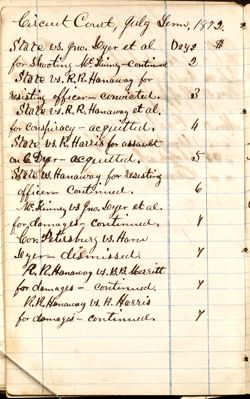 Circuit Court, July Term, 1872.
State vs. Jno. Dyer et al. Days $
for shooting McKinney - continued 2
State vs. R.R. Hanaway for
resisting officer - convicted. 3
State vs. R.R. Hanaway et al.
for conspiracy - acquitted. 4
State vs. R. Harris for assault
on C. Dyer - acquitted. 5
State vs. Hanaway for resisting
officer - continued. 6
McKinney vs Jno. Dyer et al
for damages - continued. 7
Cor. Petersburg vs. Hana
Dyer - dismissed. 7
R.R. Hanaway vs. B. Merritt
for damages - continued. 7
R.R. Hanaway vs. R. Harris
for damages - continued. 7